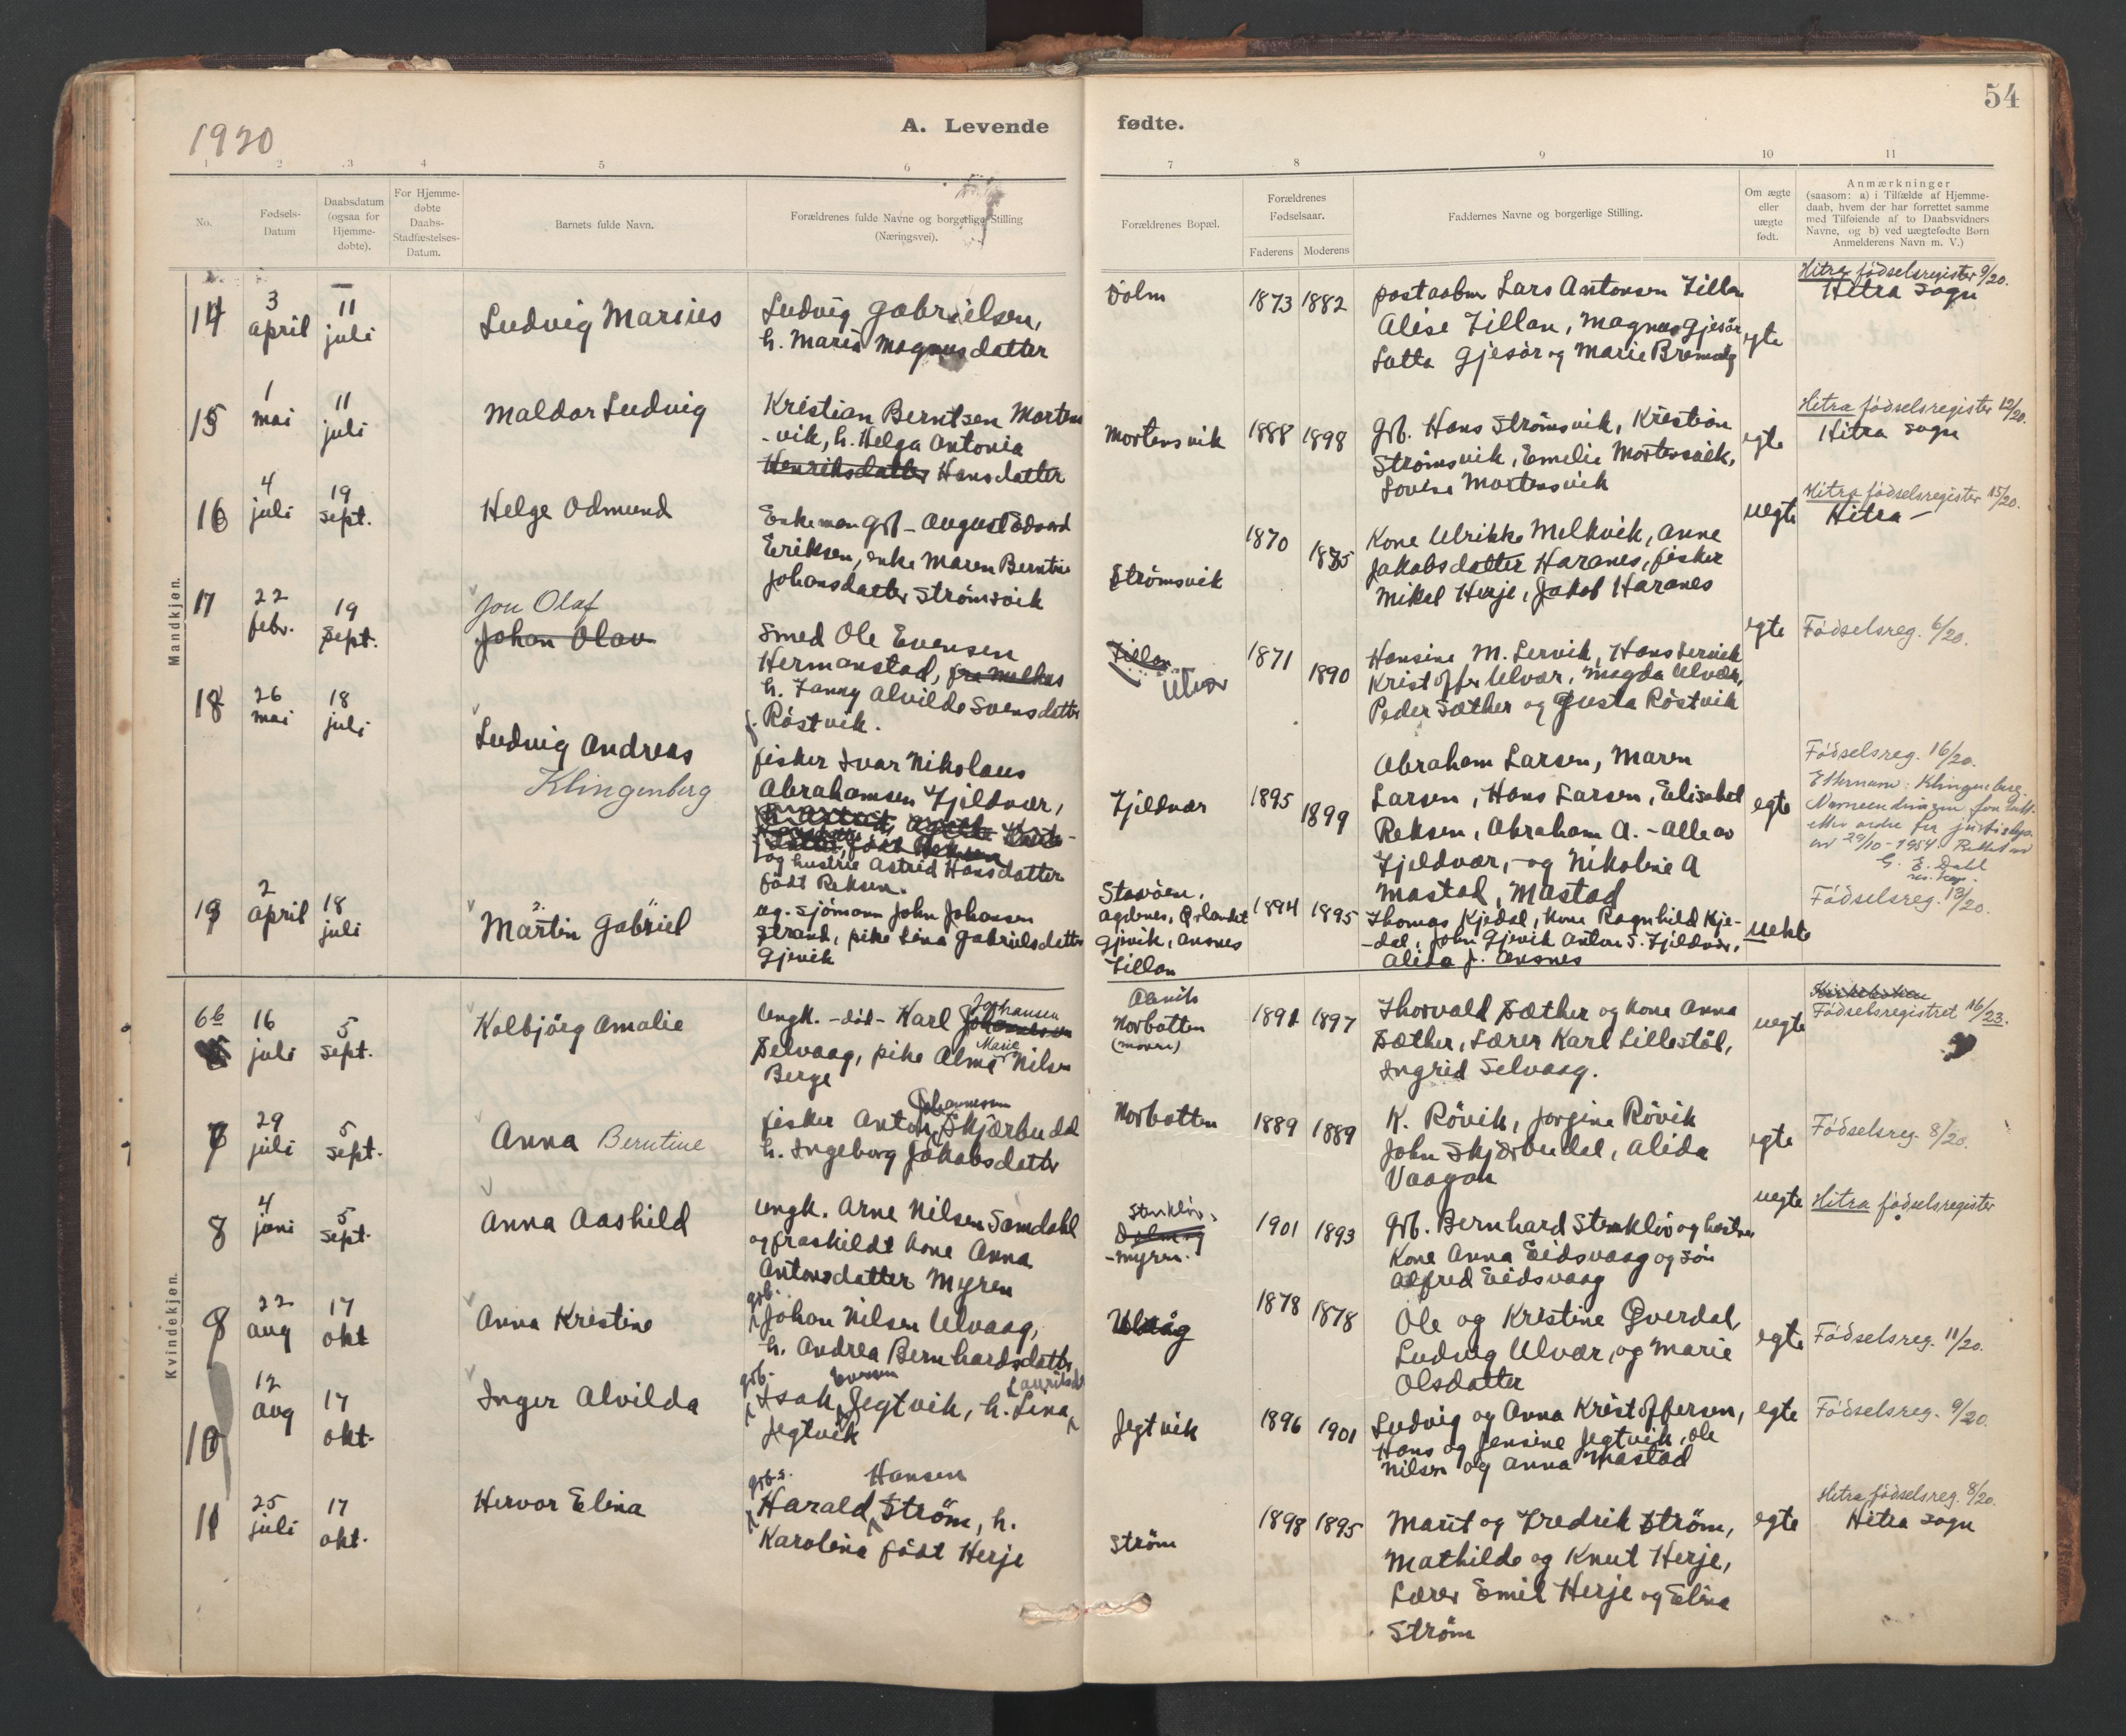 54
1920
A. Levende fødte.
1 2 3 4 5 6 7 8 9 10 11
No.
Fødsels-
Datum
Daabsdatum
(ogsaa for
Hjemme-
døbte).
For Hjemme-
døbte
Daabs-
Stadfæstelses-
Datum.
Barnets fulde Navn.
Forældrenes fulde Navne og borgerlige Stilling
(Næringsvei).
Forældrenes Bopæl.
Forældrenes
Fødselsaar.
Faderens Moderens
Faddernes Navne og borgerlige Stilling.
Om ægte
eller
uægte
født.
Anmærkninger
(saasom: a) i Tilfælde af Hjemme-
daab, hvem der har forrettet samme
med Tilføiende af to Daabsvidners
Navne, og b) ved uægtefødte Børn
Anmelderens Navn m. V.)
Mandkjøn.
14
3
april
11
juli
Ludvig Marius
Ludvig Gabrielsen,
h. Maria Magnusdatter
Dolm
1873 1882
postaabner Lars Antonsen Fillan
Alise Fillan, Magnus Gjesør
Lotta Gjesør og Marie
egte
Hitra fødselsregister 9/20.
Hitra sogn
15
1
mai
11
juli
Maldor Ludvig
Kristian Berntsen Morten
-vik, h. Helga Antonia
Henriksdatter Hansdatter
Mortensvik
1888 1898
grb. Hans Strømsvik, Kristian
Strømsvik, Emelie Mortensvik,
Lovise Mortensvik
egte
Hitra fødselsregister 12/20.
Hitra sogn
16
4
juli
19
sept.
Helge Odmund
Enkeman grb - August Edvard
Eriksen, enke Maren Berntine
Johansdatter Strømsvik
Strømsvik
1870 1875
Kone Ulrikke Melkvik, Anne
Jakobsdatter Haranes, fisker
Mikal Herje, Jakob Haranes
uegte
Hitra fødselsregister 15/20.
Hitra -
17
22
febr.
19
sept.
Jon Olaf
Johan Olav
Smed Ole Evensen
Hermanstad, fra Melhus
h. Fanny Alvilde Svensdatter
f. Röstvik.
Fillan
Ulvær
1871 1890
Hansine M. Lervik, Hans Lervik
Kristoffer Ulvær, Magda Ulvær,
Peder Sæther og Gusta Röstvik
egte
Födselsreg. 6/20.
18
26
mai
18
juli
Ludvig Andreas
Klingenberg
fisker Ivar Nikolaus
Abrahamsen Fjeldvær,
og hustru Astrid Hansdatter
født Reksen.
Fjeldvær
1895 1899
Abraham Larsen, Maren
Larsen, Hans Larsen, Elisabet
Reksen, Abraham A. - Alle av
Fjeldvær, - og Nikoline A
Mastad, Mastad
egte
Födselsreg. 16/20.
Etternavn: Klingenberg.
19
2
april
18
juli
Martin Gabriel
ug. sjömann John Johansen
Strand, pike Lina Gabrielsdatter
Gjevik
Agdenes, Ørlandet
Gjevik, Ansnes
Fillan
1894 1895
Thomas Kjedal, kone Ragnhild Kje-
-dal, John Gjevik Anton S. Fjeldvær,
Alida J. Ansnes
uekte
Födselsreg. 13/20.
Kvindekjøn.
6b
16
juli
5
sept.
Kolbjörg Amalie
Johansen
ungk. - död - Karl Johannesen
Marie
Selvaag, pike Alma Nilsen
Berge
Norbotten
1891 1897
Thorvald Sæther og kone Anna
Sæther, Lærer Karl Lillestöl,
Ingrid Selvaag.
uegte
Kirkeboken
Födselsregistret 16/23.
7
29
juli
5
sept.
Anna Berntine
Johannesen
fisker Anton Skjærbudal
h. Ingeborg Jakobsdatter
Norbotten
1889 1889
K. Rövik, Jorgine Rövik
John Skjærbudal, Alida
Vaagan
egte
Födselsreg. 8/20.
8
4
juni
5
sept.
Anna Aashild
ungk. Arne Nilsen Samdahl
og fraskildt kone Anna
Antonsdatter Myren
Stenkløv,
-myren.
1901 1893
grb. Bernhard Stenkløv og hustru
Kone Anna Eidsvaag og søn
Alfred Eidsvaag
uegte
Hitra fødselsregister
9
22
aug
17
okt
Anna Kristine
grb.
Johan Nilsen Ulvaag,
h. Andrea Bernhardsdatter
Ulvåg
1878 1878
Ole og Kristine Qverdal,
Ludvig Ulvær, og Marie
Olsdatter
egte
Födselsreg. 11/20.
10
12
aug
17
okt.
Inger Alvilda
grb. Evensen
Isak Jegtvik, h. Lina
Jegtvik
Jegtvik
1896 1901
Ludvig og Anna Kristoffersen,
Hans og Jensine Jegtvik, Ole
Nilsen og Anna Mastad
egte
Födselsreg. 9/20.
11
25
juli
17
okt.
Hervor Elina
grbs. Hansen
Harald Ström, h.
Karolina født Herje
Ström
1898 1895
Marit og Fredrik Ström,
Mathilde og Knut Herje,
Lærer Emil Herje og Elina
Ström
egte
Hitra fødselsreg. 8/20.
Hitra sogn